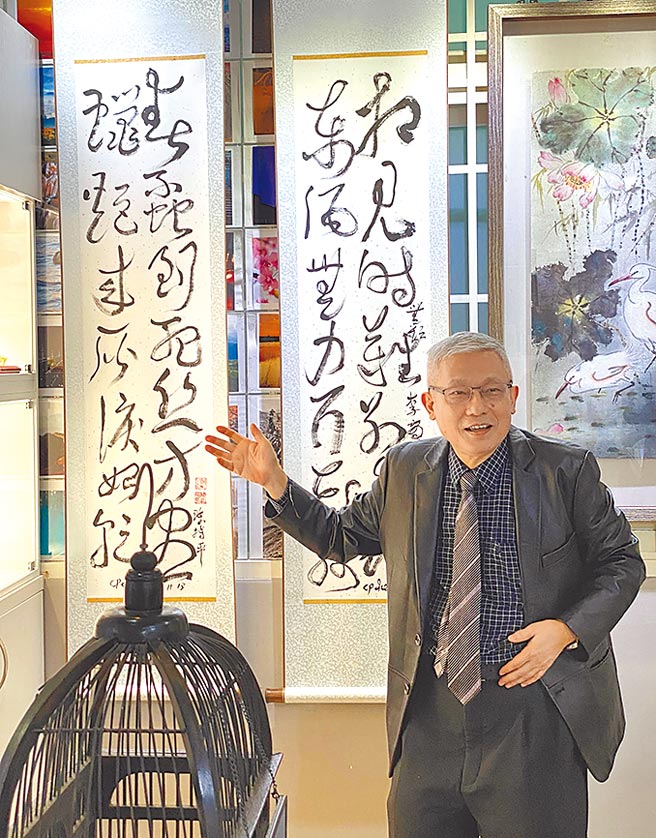 無題 李商
相見時難別
東風無力百花殘
春蠶到死絲方盡
蠟炬成灰淚始乾